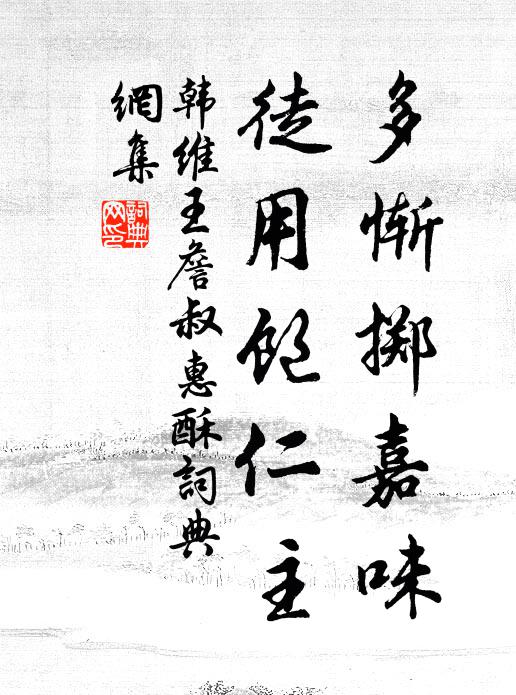 多惭掷嘉味
徒用饱仁主
韩维王詹叔惠酥詞典
網集
詞典網印